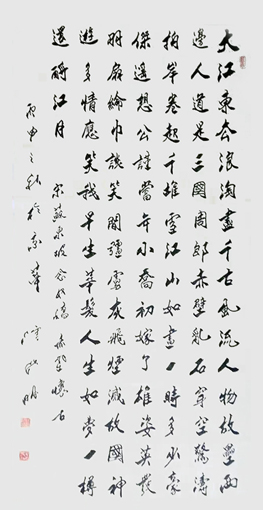 大江東去浪淘盡千古風流人物故壘西
邊人道是三國周郎赤壁亂石穿空驚濤
拍岸卷起千堆雪江山如畫一時多少豪
傑遙想公瑾當年小喬初嫁了雄姿英發
羽扇綸巾談笑間彊虜灰飛煙滅故國神
遊多情應笑我早生華髮人生如夢一樽
還酹江月 宋蘇東坡念奴嬌 赤壁懷古
丙申之秋於京華